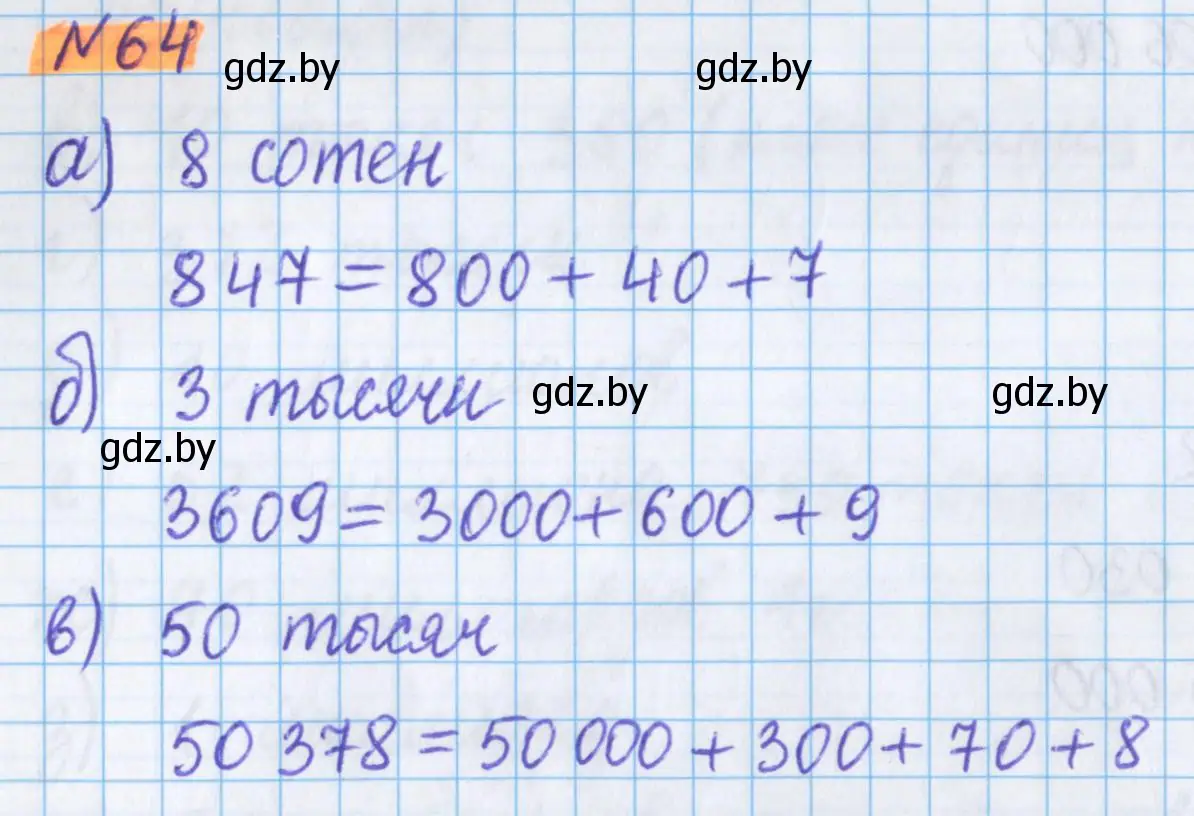 №64
gdz.by gdz.by
а) 8 сотен
847 = 800 + 40 + 7
б) 3 тысячи gdz.by gdz.by
gdz.by
3609 = 3000 + 600 + 9
в) 50 тысяч
50 378 = 50 000 + 300 + 70 + 8